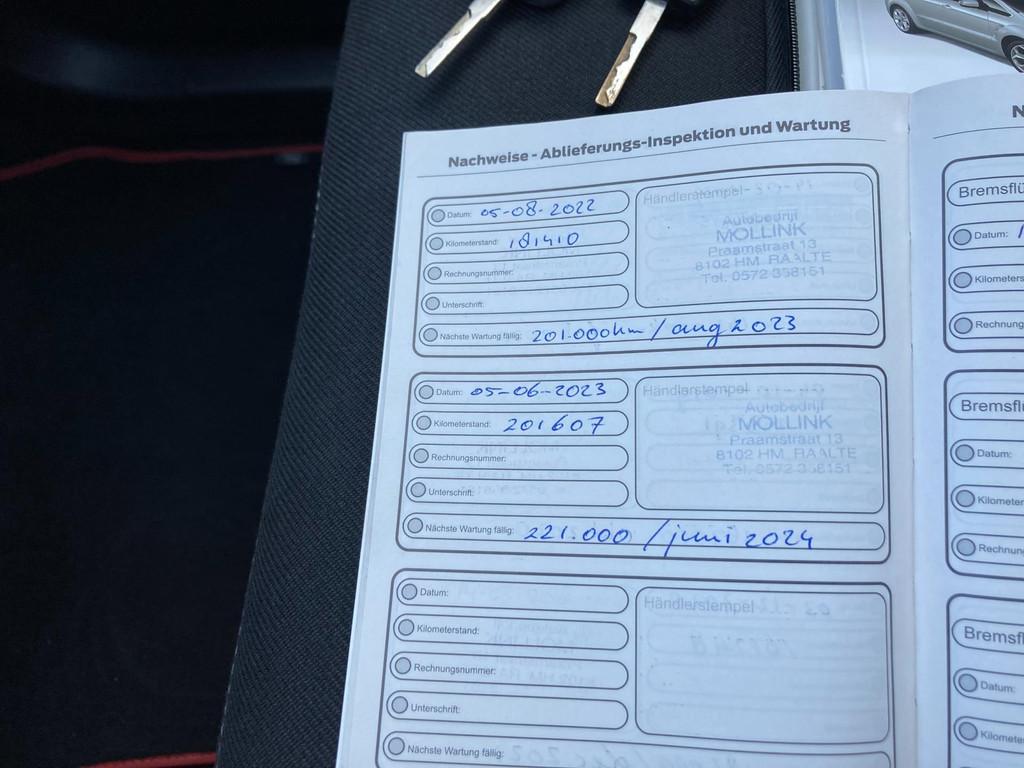 Nachweise - Ablieferungs-Inspektion und Wartung
Datum: 05-08-2022
Kilometerstand: 181410
Rechnungsnummer:
Unterschrift:
Nächste Wartung fällig: 201.000km / aug 2023
Händlerstempel
Autobedrijf
MOLLINK
Praamstraat 13
8102 HM RAALTE
Tel. 0572 358151
Datum: 05-06-2023
Kilometerstand: 201607
Rechnungsnummer:
Unterschrift:
Nächste Wartung fällig: 221.000 / juni 2024
Händlerstempel
Autobedrijf
MOLLINK
Praamstraat 13
8102 HM RAALTE
Tel. 0572 358151
Datum:
Kilometerstand:
Rechnungsnummer:
Unterschrift:
Nächste Wartung fällig:
Händlerstempel
N
Bremsflü
Datum:
Kilometers
Rechnung
Bremsflü
Datum:
Kilometer
Rechnun
Bremsflü
Datum:
Kilomete